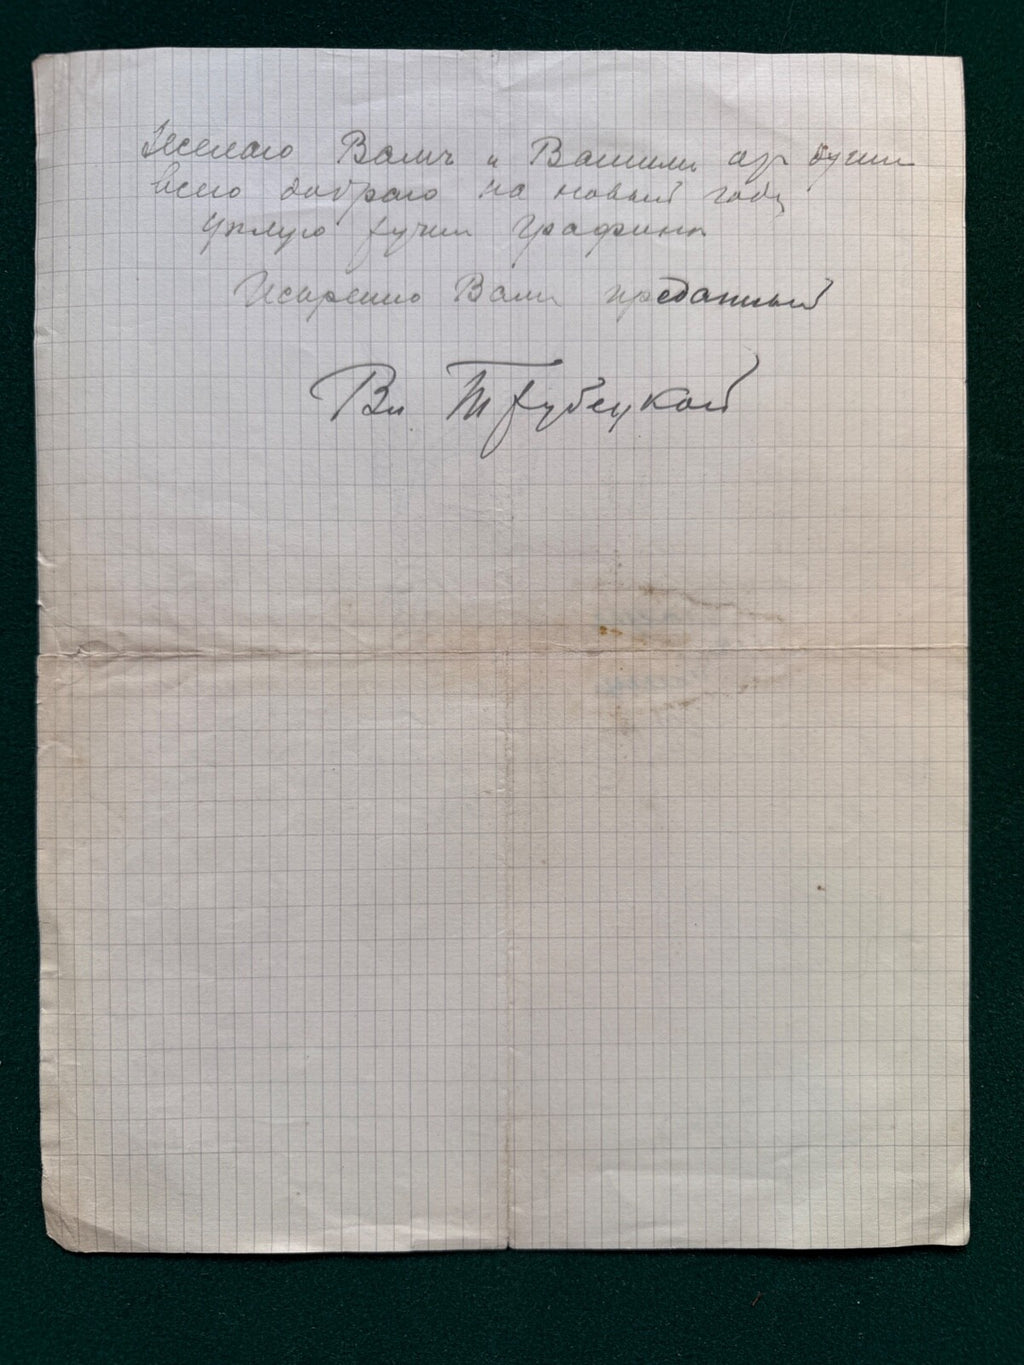 Желаю Вамъ и Вашимъ от души
всего добраго на новый годъ
Целую ручки Графини
Искренно Вамъ преданный
Вл Трубецкой